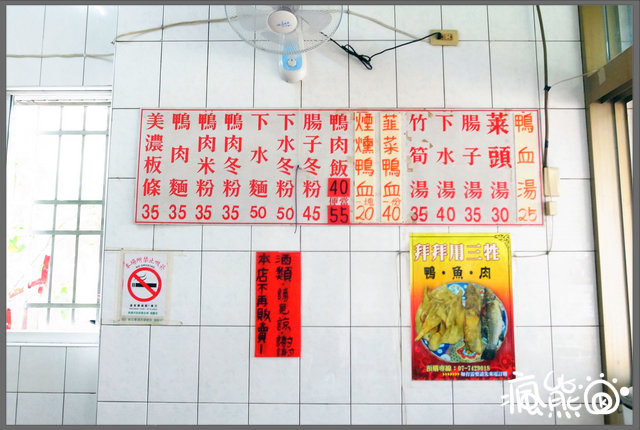 美濃板條 35
鴨肉麵 35
鴨肉米粉 35
鴨肉冬粉 35
下水麵 50
下水冬粉 50
腸子冬粉 45
鴨肉飯 40
便當 55
煙燻鴨血 一塊 20
韮菜鴨血 一份 40
竹筍湯 35
下水湯 40
腸子湯 35
菜頭湯 30
鴨血湯 25
本場所禁止吸菸
酒類·請見諒·謝謝
本店不再販賣！
拜拜用三牲
鴨·魚·肉
預購專線：07-7429018
瘋熊